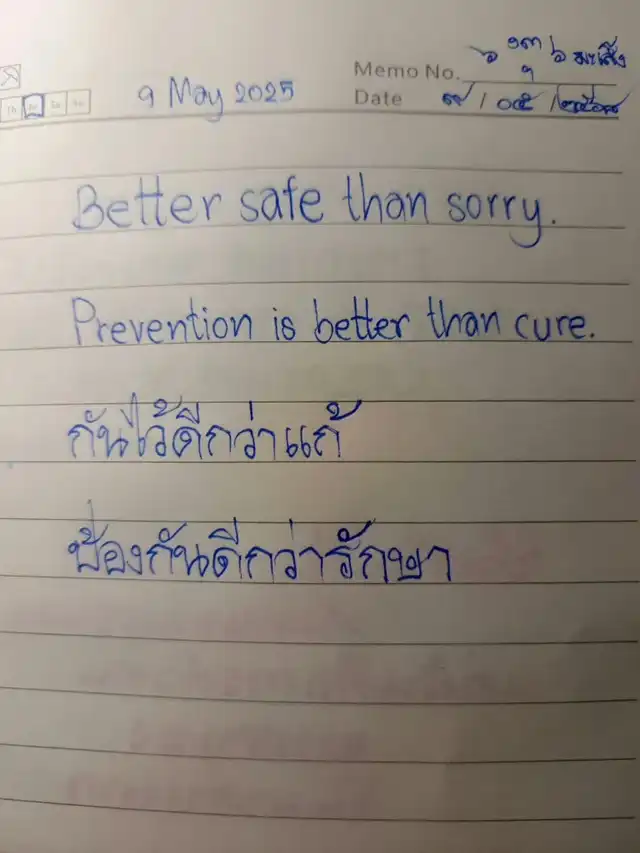 ๖ ๑๓ ๖ มะเส็ง
๑
Memo No.
9 May 2025
Date ๙ / ๐๕ / ๒๕๖๘
Better safe than sorry.
Prevention is better than cure.
กันไว้ดีกว่าแก้
ป้องกันดีกว่ารักษา